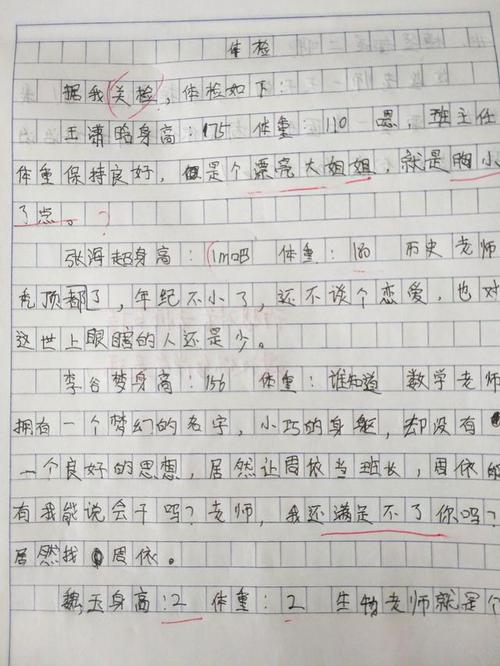 体检
据我关检，体检如下：
王潇晗身高：175 体重：110 恩，班主任
体重保持良好，但是个漂亮大姐姐，就是胸小
了点。？
张海超身高：1m吧 体重：180 历史老师
秃顶都了，年纪不小了，还不谈个恋爱，也对
这世上眼瞎的人还是少。
李谷梦身高：156 体重：谁知道 数学老师
拥有一个梦幻的名字，小巧的身躯，却没有
一个良好的思想，居然让周依当班长，周依
有我能说会干吗？老师，我还满足不了你吗？
居然找周依。
魏玉身高：2 体重：2 生物老师就是个